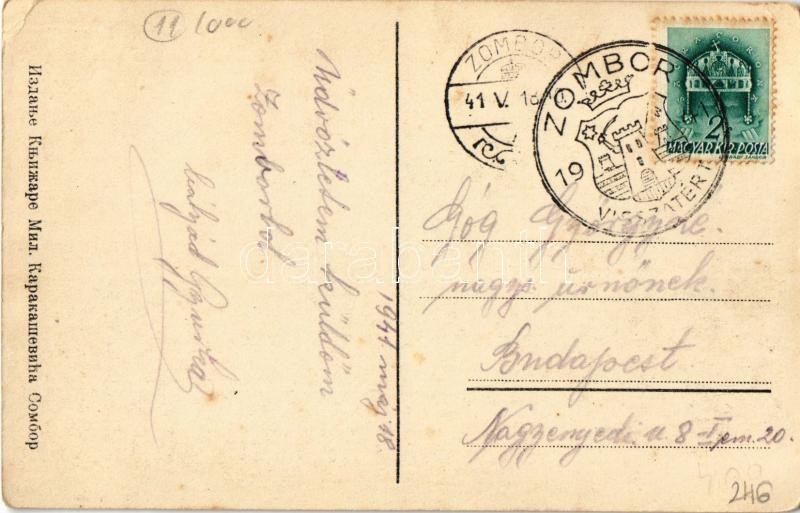 11
1000
Издање Књижаре Мил. Каракашевића Сомбор
Üdvözletem küldöm
Zomborból
1941 máj 18.
ZOMBOR
41 V. 18
ZOMBOR
1941
VISSZATÉRT
2f
MAGYAR KIR. POSTA
Góg Györgyné
nagys. úrnőnek.
Budapest
Nagyenyedi u 8 I em. 20.
246
darabanth